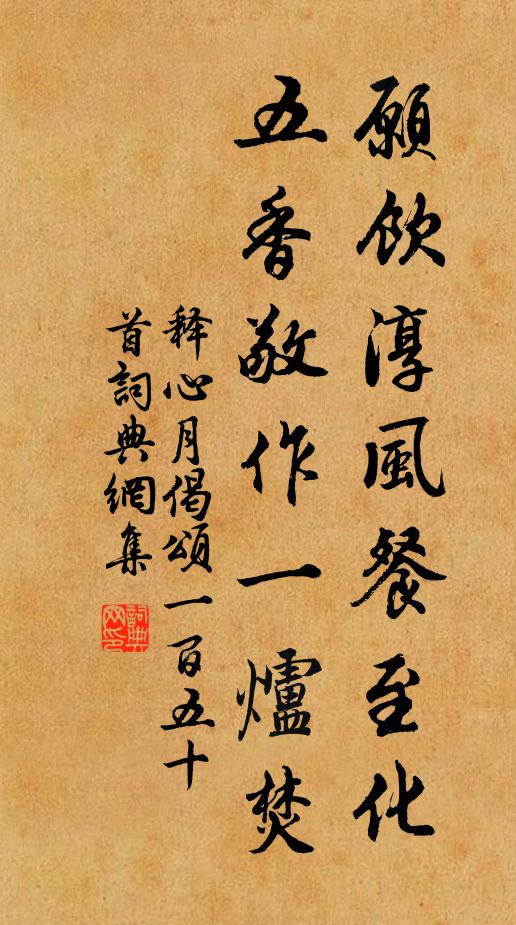 願飲淳風餐至化
五香敬作一爐焚
释心月偈頌一百五十
首詞典網集
詞典网印